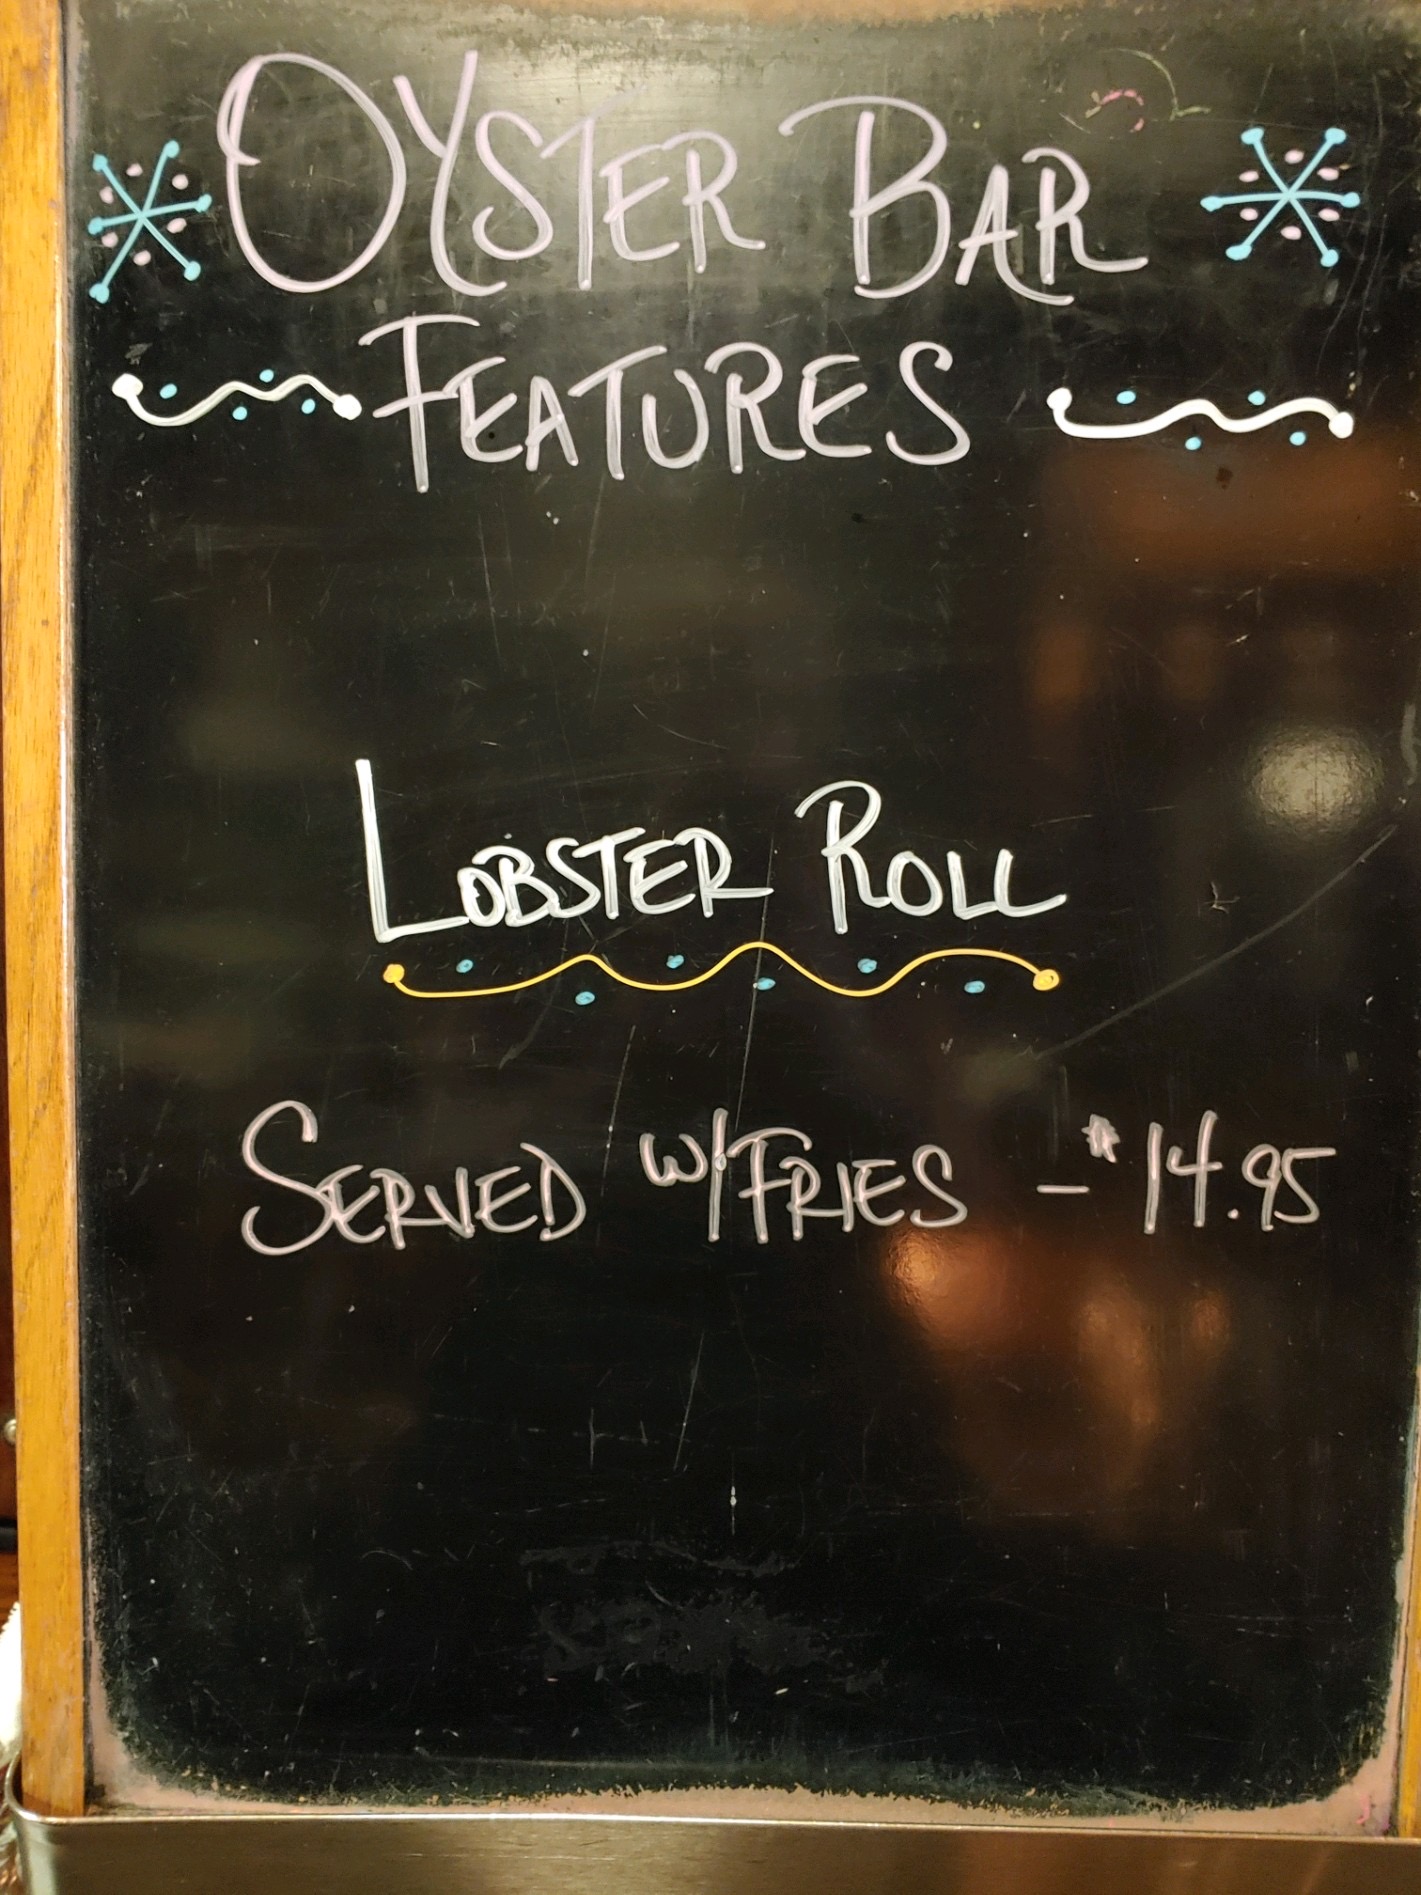 OYSTER BAR
FEATURES
LOBSTER ROLL
SERVED W/FRIES - $14.95